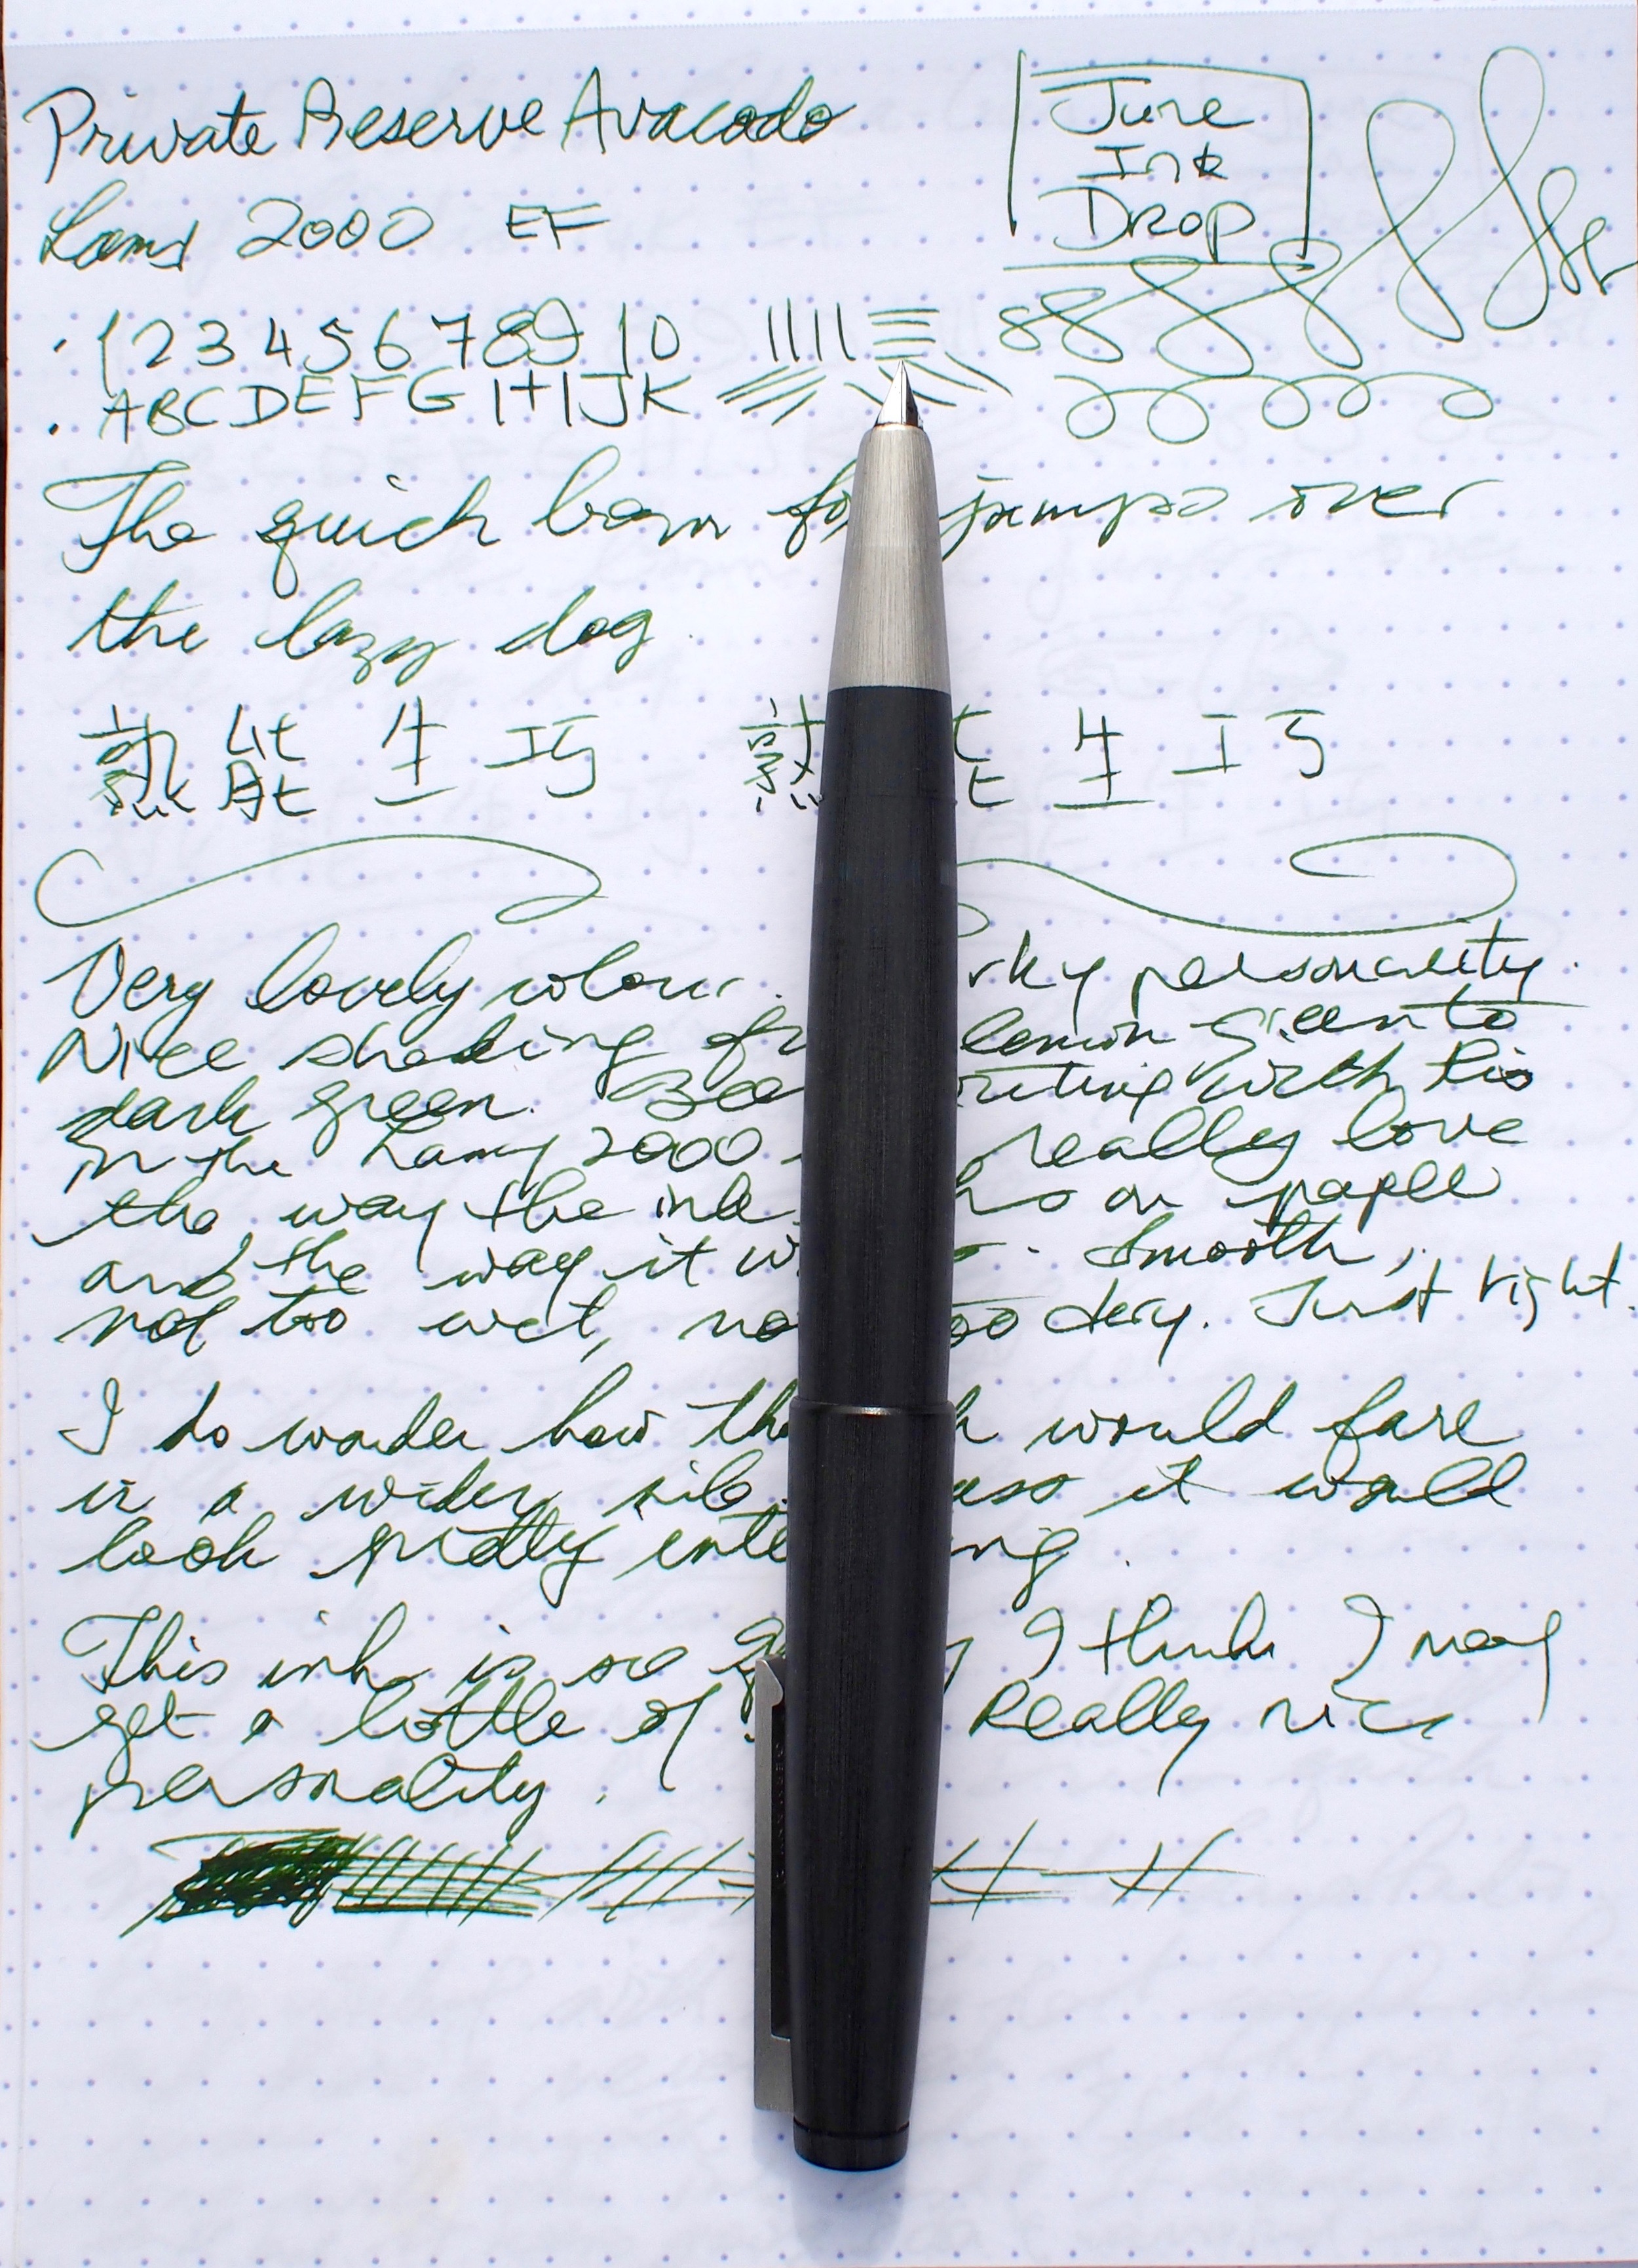 Private Reserve Avacado
Lamy 2000 EF
June
Ink
Drop
1 2 3 4 5 6 7 8 9 10
A B C D E F G H I J K
The quick brown fox jumps over
the lazy dog
熟能生巧 熟能生巧
Very lovely colour. personality.
Nice shading lemon green to
dark green. writing with this
in the Lamy 2000 really love
the way the ink on paper
and the way it Smooth,
not too wet, too dry. Just right.
I do wonder how would fare
in a wider nib. it would
look pretty
This ink is so I think I may
get a bottle of Really nice
personality.